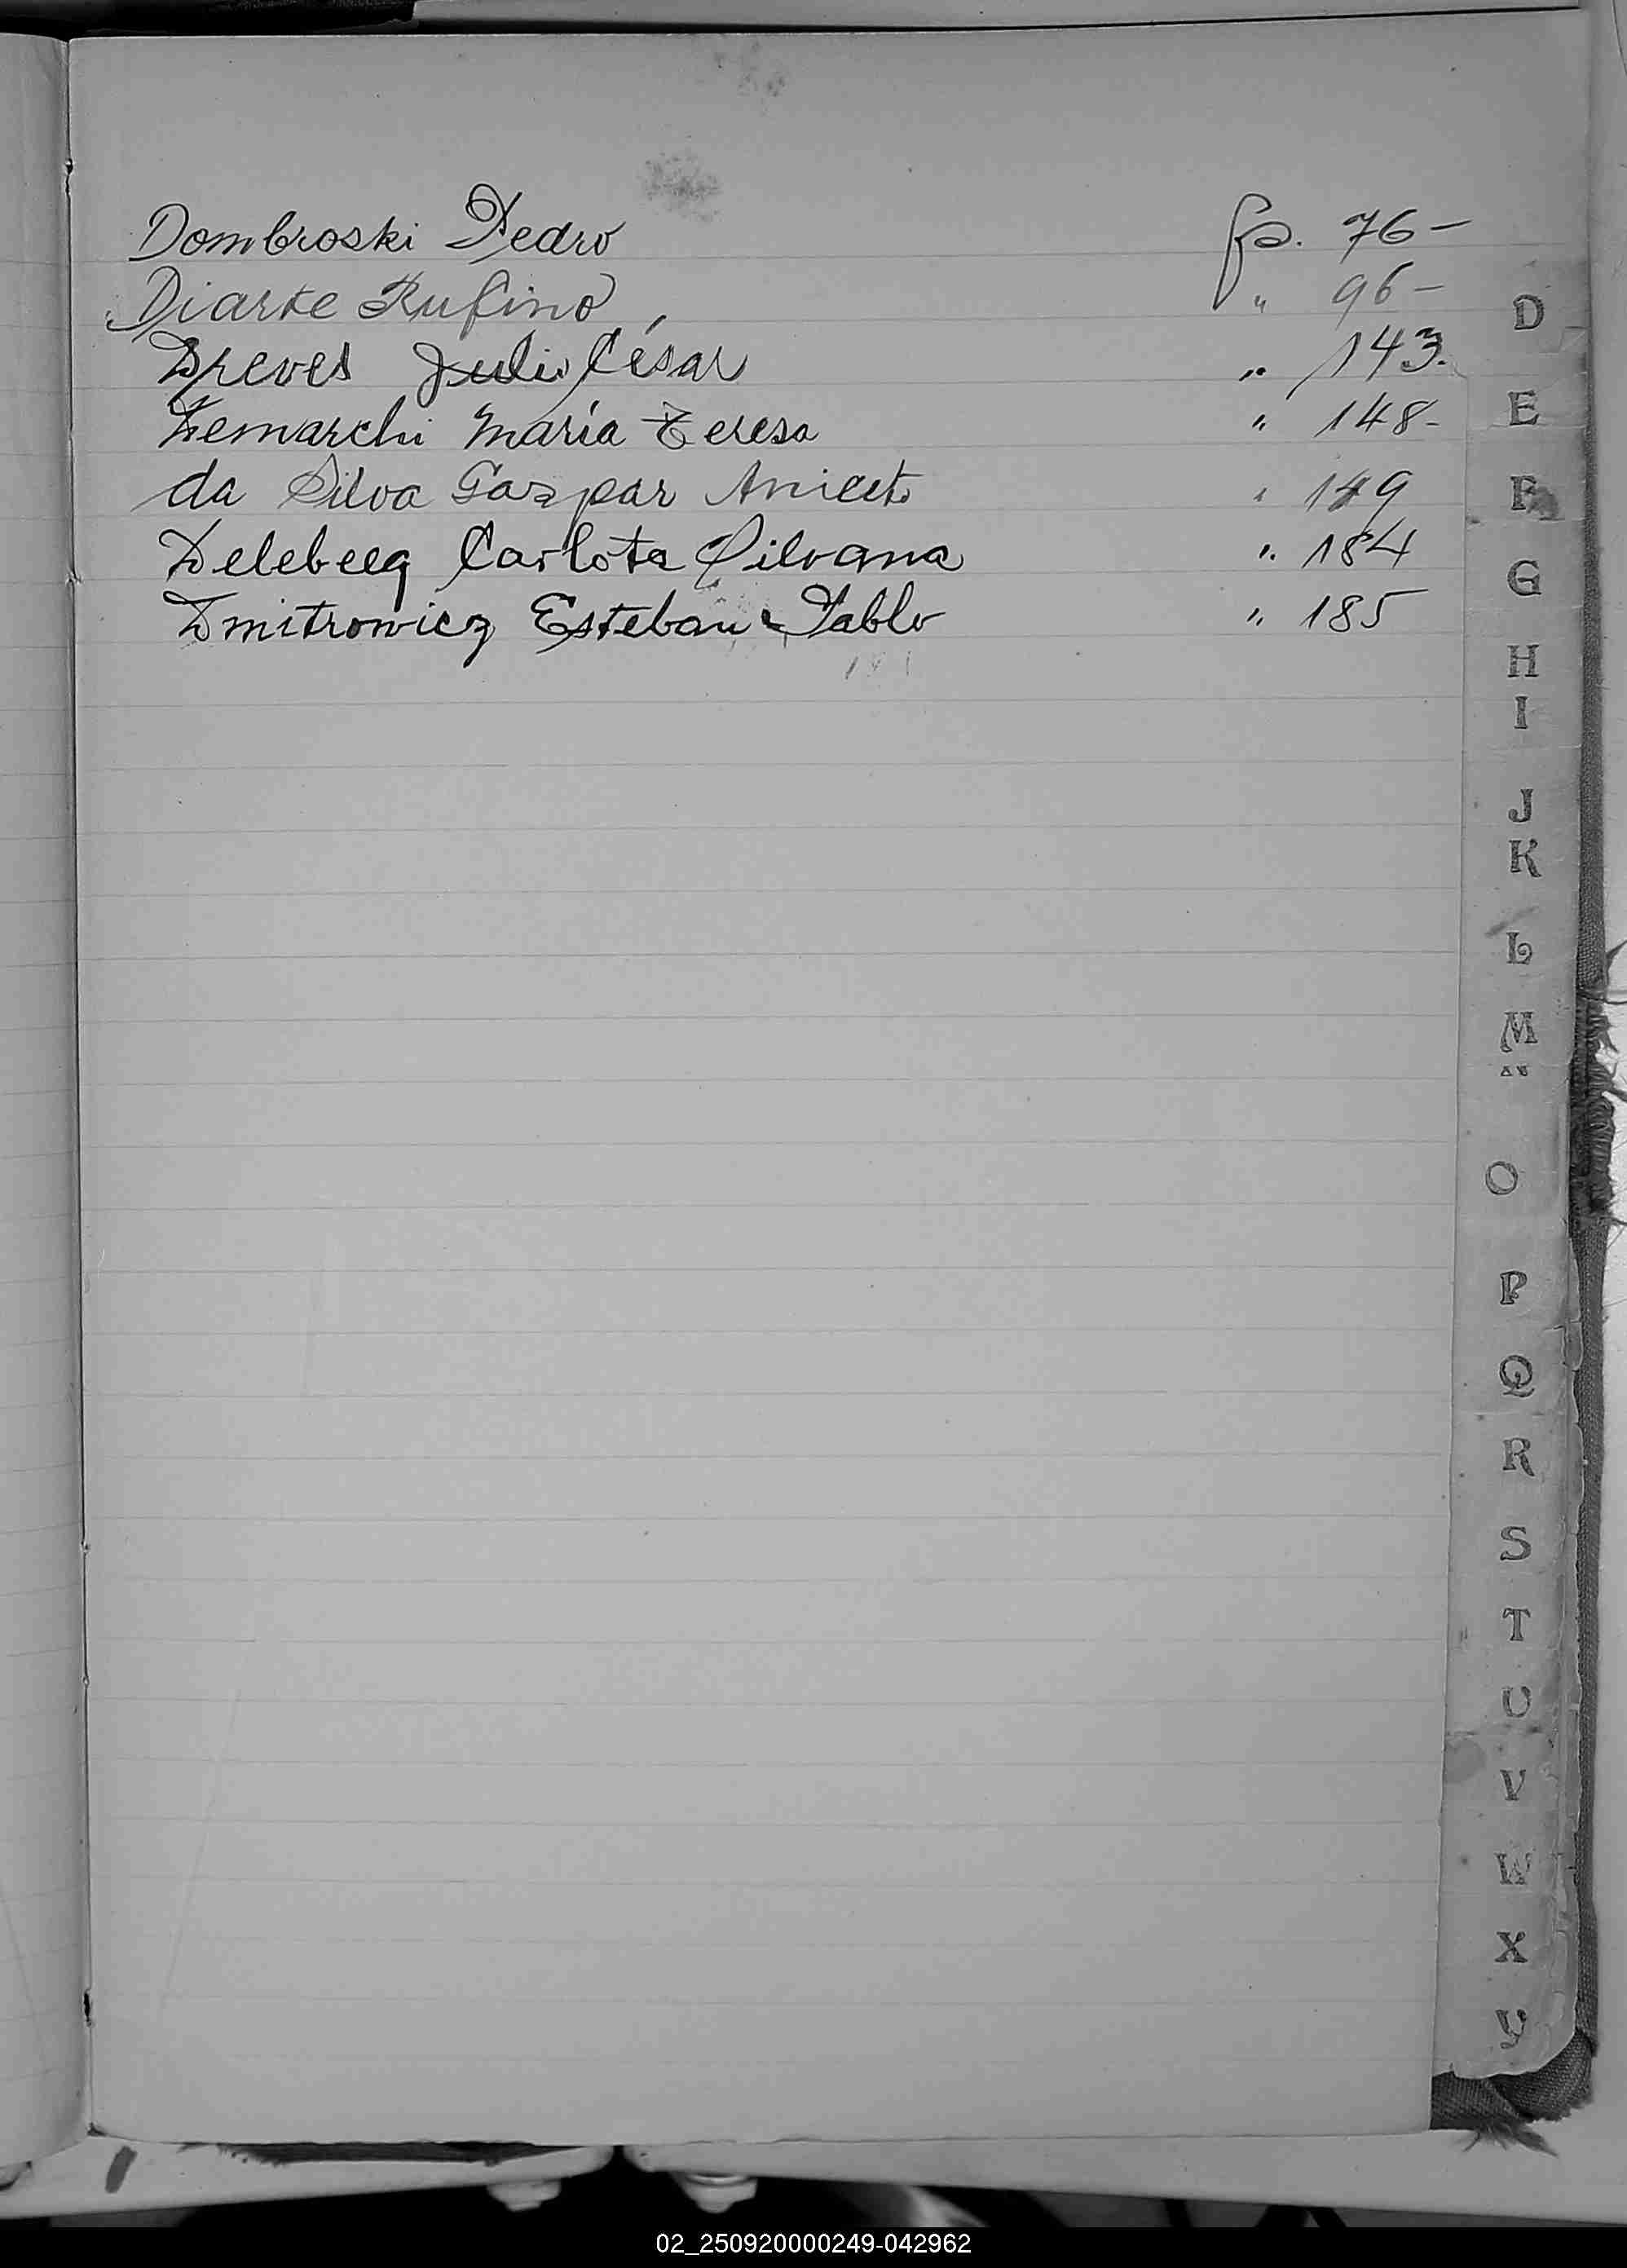 Dombroski Pedro fs. 76-
Diarte Rufino " 96-
Dreves Julio César " 143.
Demarchi María Teresa " 148-
da Silva Gaspar Aniceto " 149
Delebecq Carlota Silvana " 184
Dmitrowicz Esteban Pablo " 185
D
E
F
G
H
I
J
K
L
M
O
P
Q
R
S
T
U
V
W
X
Y
02_250920000249-042962